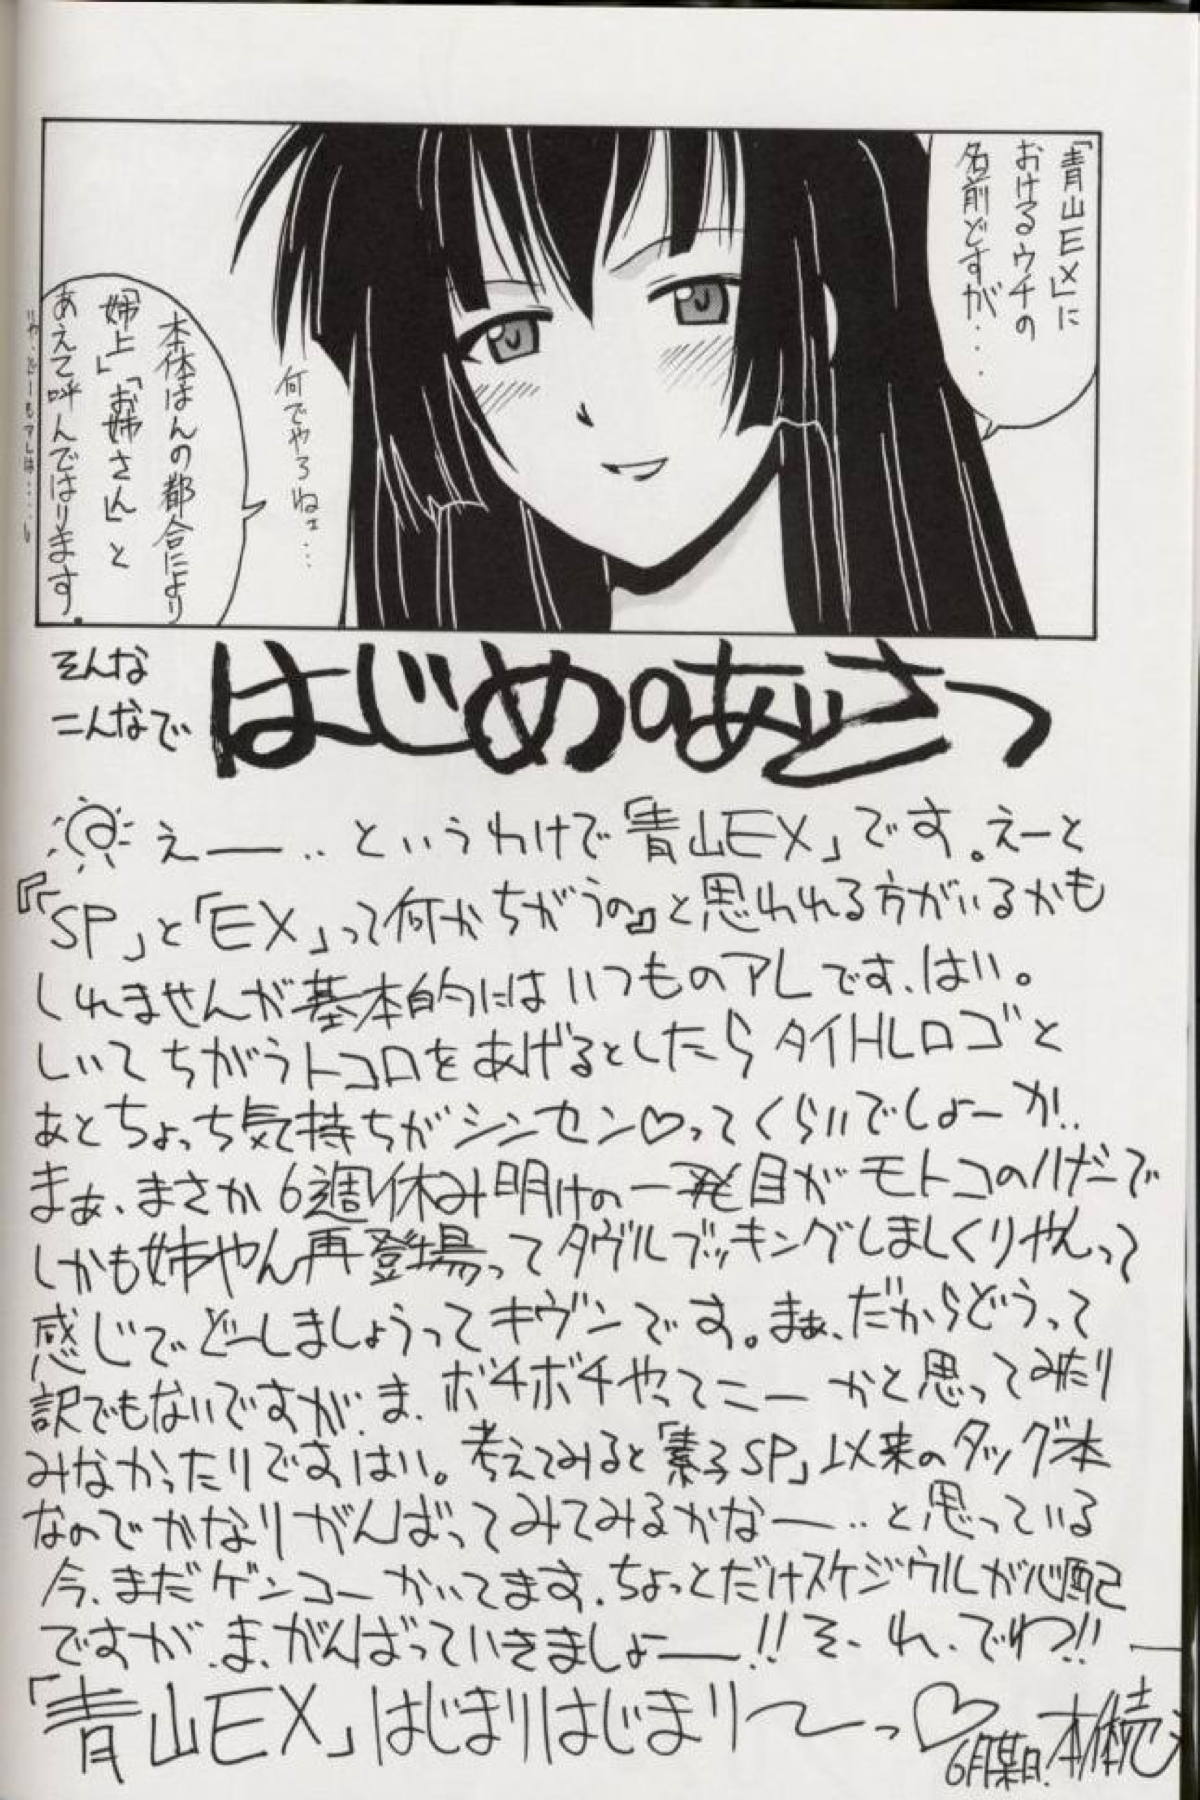 「青山EX」に
おけるウチの
名前どすが...
何でやろねェ...
本体はんの都合により
「姉上」「お姉さん」と
あえて呼んではります。
そんな
こんなで
はじめのあいさつ
えー—..というわけで「青山EX」です。えーと
『「SP」と「EX」って何かちがうの』と思われる方がいるかも
しれませんが基本的にはいつものアレです、はい。
しいてちがうトコロをあげるとしたらタイトルロゴと
あとちょっち気持ちがシンセン♡ってくらいでしょーか..
まぁ、まさか6週休み明けの一発目がモトコのハダーで
しかも姉やん再登場ってダヴルブッキングしましくりやんって
感じでどーしましょうってキヴンです。まぁ、だからどうって
訳でもないですが、ま、ボチボチやってこーかと思ってみたり
みなかったりです、はい。考えてみると「素子SP」以来のタッグ本
なのでかなりがんばってみてみるかなー—..と思っている
今、まだゲンコーかいてます、ちょっとだけスケジウルが心配
ですが、ま、がんばっていきましょー—!!そ、れ、でわ!!—
「青山EX」はじまりはじまり〜っ♡
6月某日.